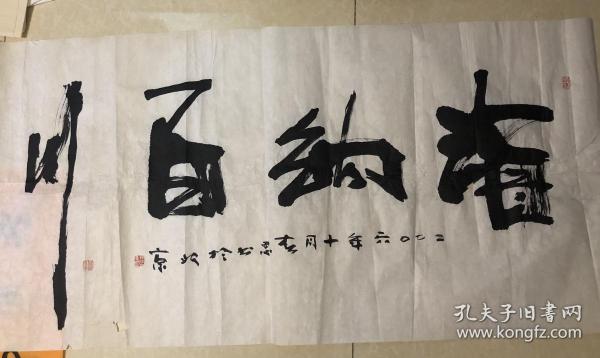 海纳百川
二〇〇六年十月
书于北京
孔夫子旧书网
www.kongfz.com